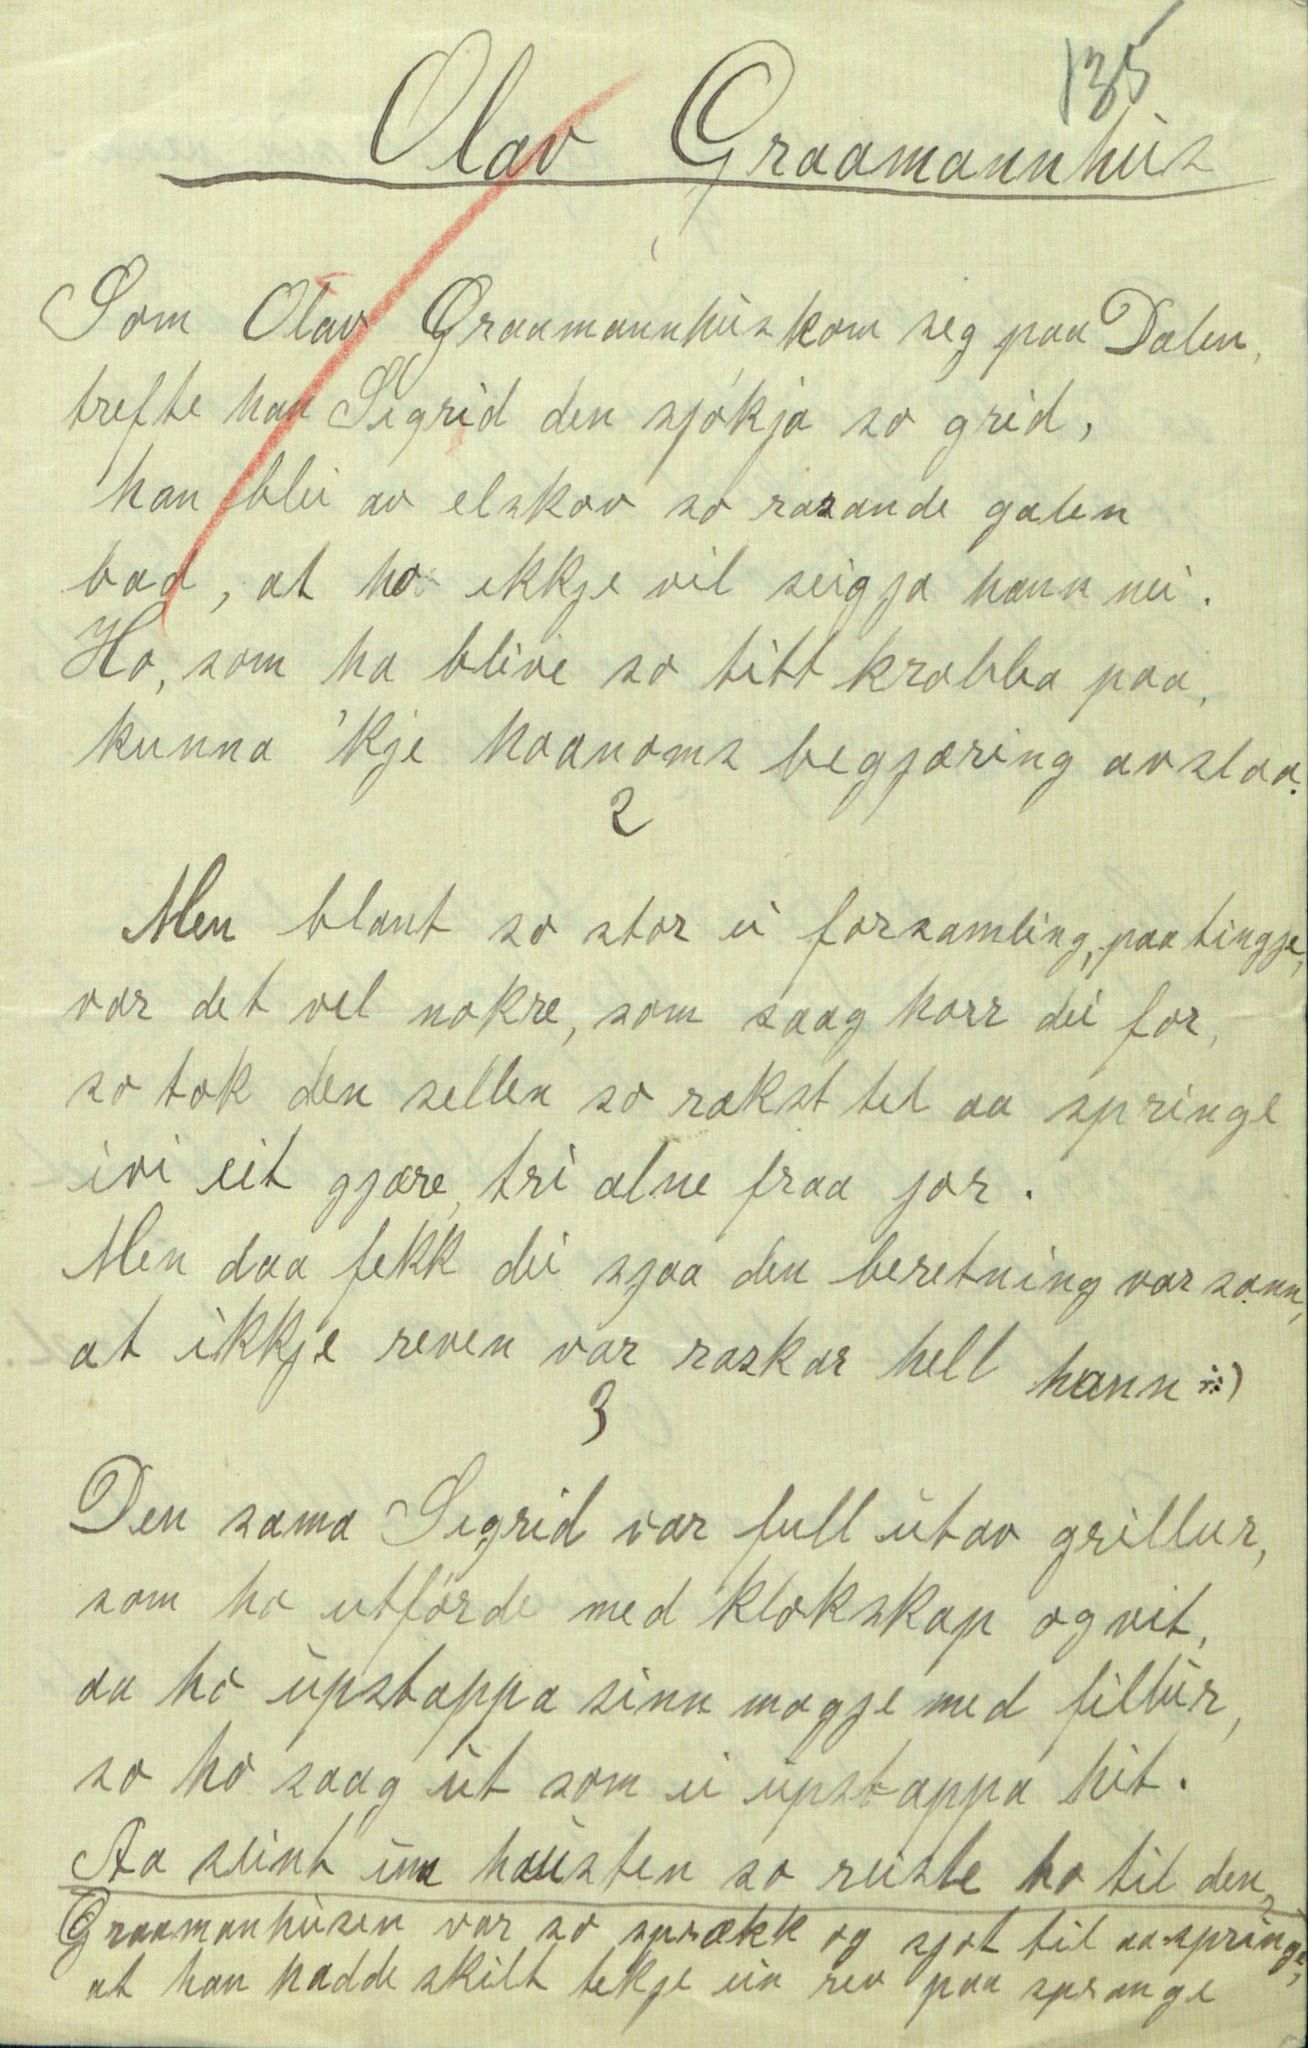 135
Olav Graamannhus
Som Olav Graamannhus kom seg paa Dalen,
trefte han Sigrid den sjokja so grid,
han blei av elskov so rasande galen
bad, at ho ikkje vil seigja hann nei.
Ho, som ha blive so titt krabba paa,
kunna 'kje haanoms begjæring avslaa.
2
Men blant so stor ei forsamling, paa tingje,
var det vel nokre, som saag korr dei for,
so tok den sellen so rakst tel aa springe
ivi eit gjære, tri alne fraa jor.
Men daa fekk dei sjaa den beretning var sann,
at ikkje reven var raskar hell hann :)
3
Den sama Sigrid var full utav grillur,
som ho utførde med klokskap og vit,
aa ho upstappa sinn magje med fillur,
so ho saag ut som ei upstappa hit.
Aa seint um hausten so reiste ho til den,
Graamanhusen var so sprækk og sjot til aa springe,
at han hadde skilt tekje ein rev paa sprange